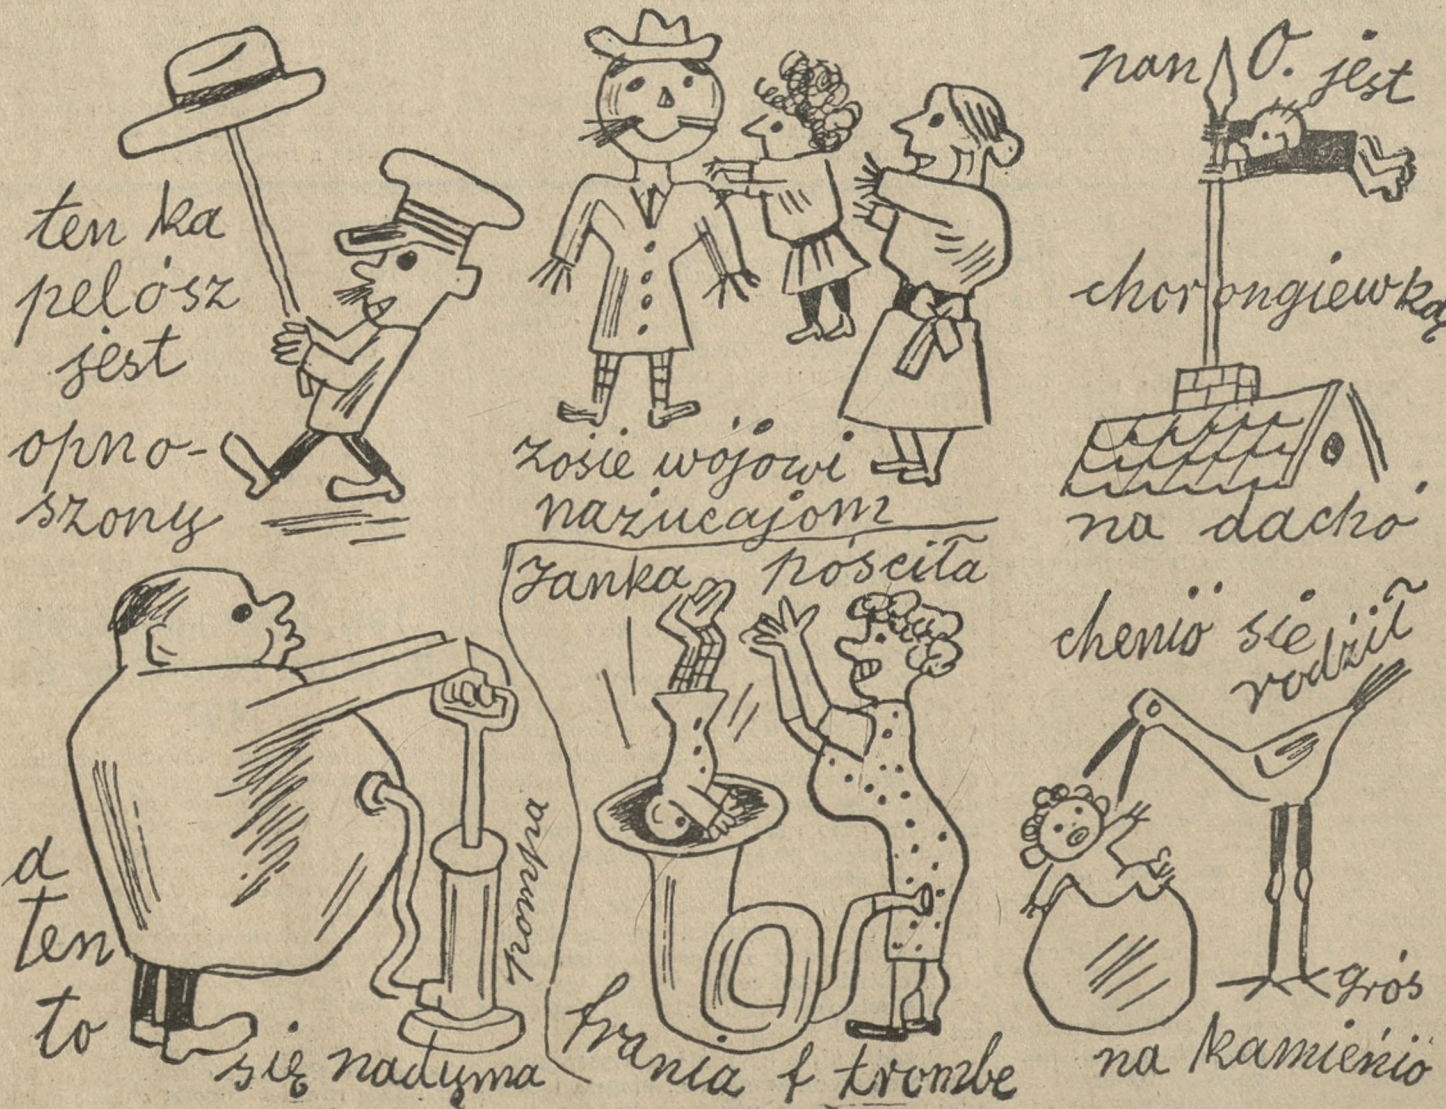 ten ka
pelósz
jest
opno-
szony
zosie wójowi
nażucajom
pan O. jest
chorongiewką
na dachó
a
ten
to
się nadyma
pompa
Janka póściła
frania f trombe
chenió sie
rodził
grós
na kamienió